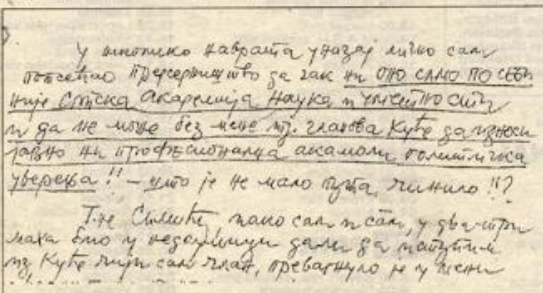 У неколико наврата уназад лично сам
потсећао Председништво да чак ни оно само по себи
није Српска академија наука и уметности
и да не може без мене тј. чланова Куће да износи
јавно ни професионална а камоли политичка
уверења!! – што је не мало пута, чинило!?
Г-не Симићу, иако сам и сам, у два-три
маха био у недоумици да ли да напустим
ту Кућу чији сам члан, превагнуло је у мени